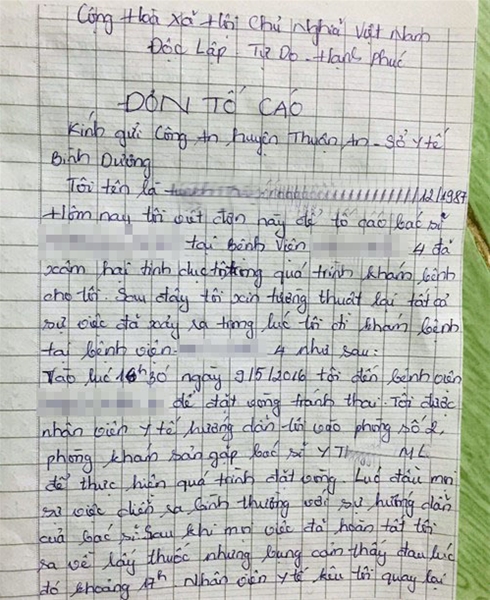 Cộng Hoà Xã Hội Chủ Nghĩa Việt Nam
Độc Lập Tự Do - Hạnh Phúc
ĐƠN TỐ CÁO
Kính gửi Công An huyện Thuận An - Sở Y tế
Bình Dương
Tôi tên là 12/1987
Hôm nay tôi viết đơn này để tố cáo bác sĩ
tại Bệnh Viện 4 đã
xâm hại tình dục tôi trong quá trình khám bệnh
cho tôi. Sau đây tôi xin tường thuật lại tất cả
sự việc đã xảy ra trong lúc tôi đi khám bệnh
tại bệnh viện 4 như sau:
Vào lúc 16h30 ngày 9/5/2016 tôi đến bệnh viện
để đặt vòng tránh thai. Tôi được
nhân viên y tế hướng dẫn tôi vào phòng số 2,
phòng khám sản gặp bác sĩ Y ML
để thực hiện quá trình đặt vòng. Lúc đầu mọi
sự việc diễn ra bình thường với sự hướng dẫn
của bác sĩ. Sau khi mọi việc đã hoàn tất tôi
ra về lấy thuốc nhưng bụng cảm thấy đau lúc
đó khoảng 17h Nhân viên y tế kêu tôi quay lại